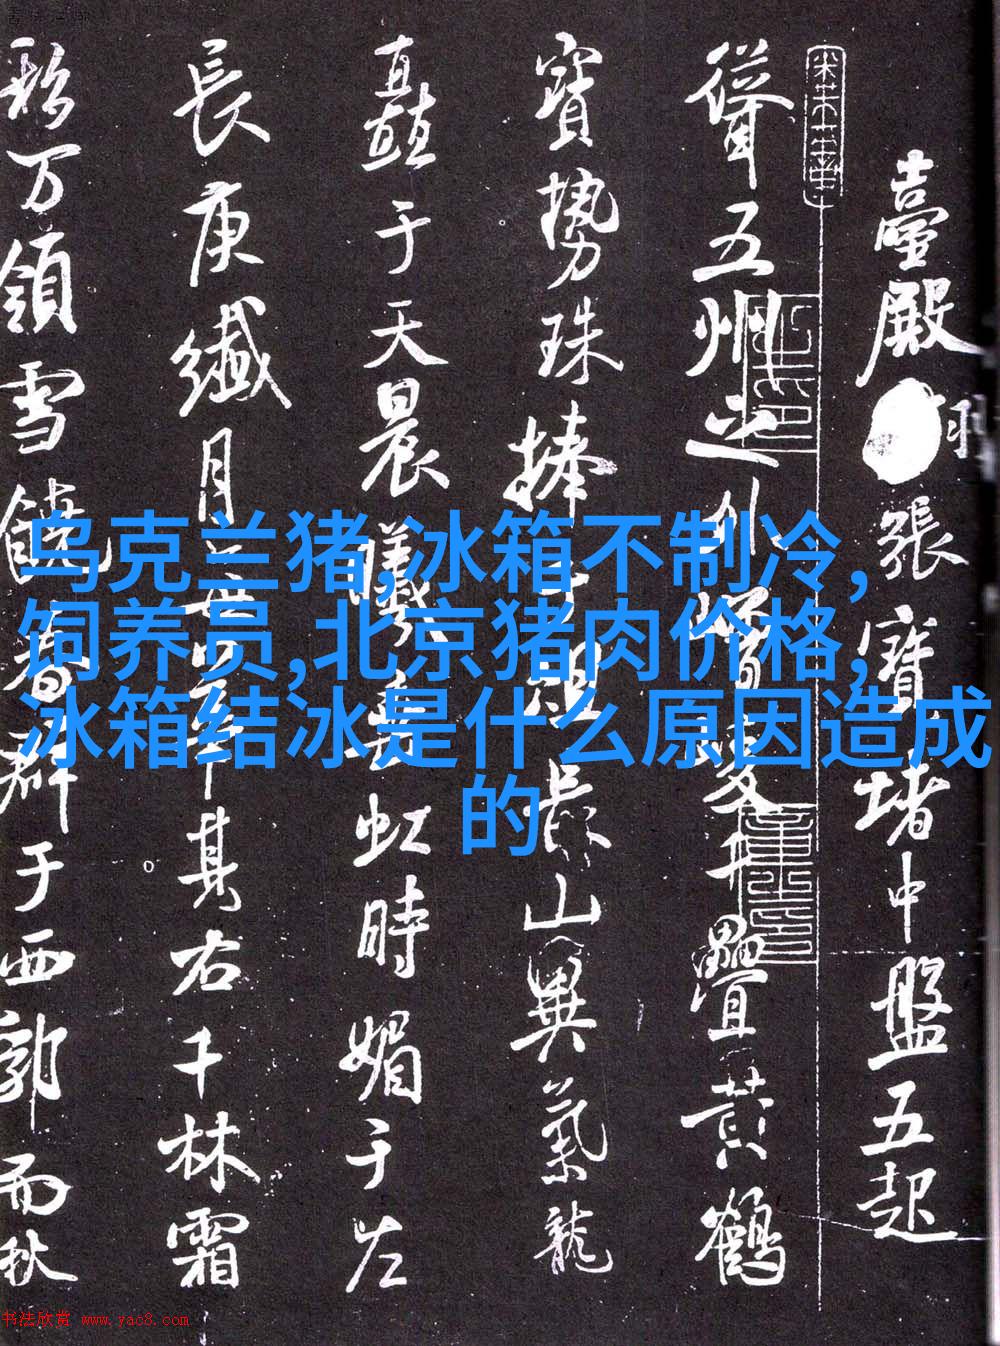 臺殿 張寶堵中盤五起
聳五州之外 疊黄鶴
寶勢珠捧 山異氣龍
矗于天晨曦 虹時媚于左
長庚纖月 其右千林霜
彩万領雪饒 群于西郭而秋
乌克兰猪,冰箱不制冷,
饲养员,北京猪肉价格,
冰箱结冰是什么原因造成
的
书法欣赏 www.yac8.com